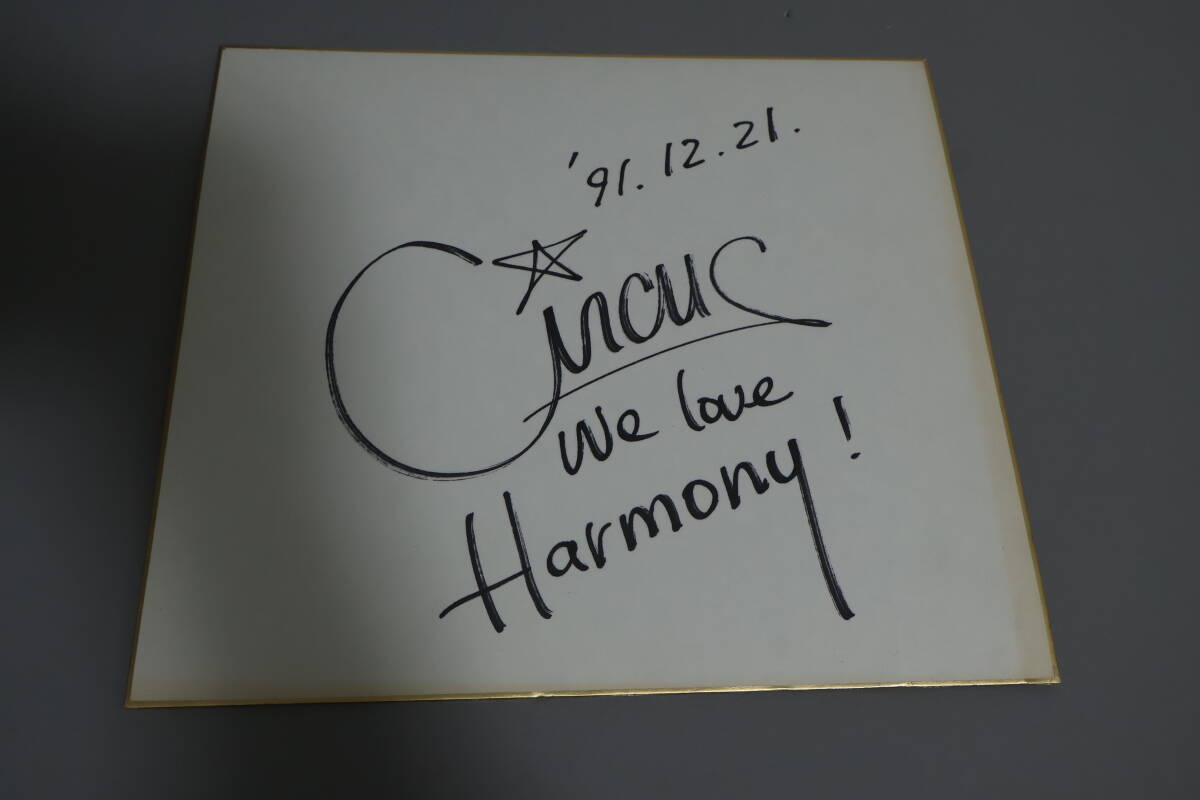 '91.12.21.
Circus
We love
Harmony!